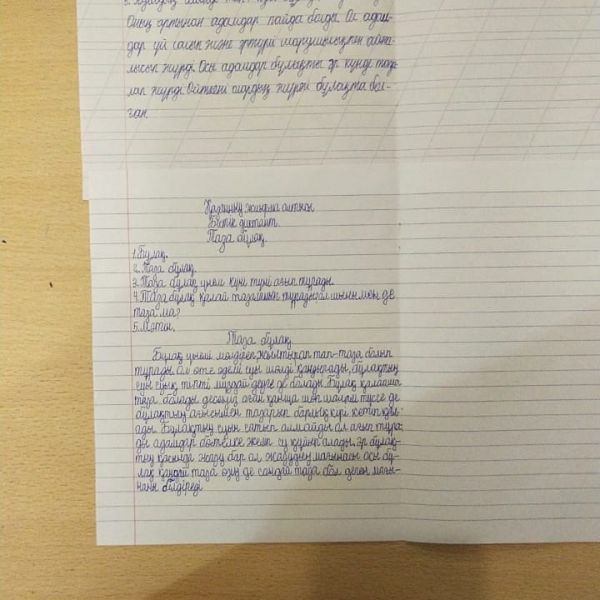 Оның артынан адамдар пайда болды. Ол адам-
дар үй салып және әртүрлі шаруашылықпен айна-
лысып жүрді. Осы адамдар бұлақты әр күнде таза-
лап жүрді. Өйткені олардың жүрегі бұлақта бол-
ған.
Біртік диктант.
Таза бұлақ.
1. Бұлақ.
2. Таза бұлақ.
3. Таза бұлақ үнемі күні түні ағып тұрады.
4. Таза бұлақ қалай тазаланып тұрады ол шынымен де
таза ма?
5. Мәтін.
Таза бұлақ
Бұлақ үнемі мөлдіреп жылтырап тап-таза болып
тұрады ол өте әдемі суы шөлді қандырады, бұлақтың
суы суық тіпті мұздай деуге де болады. Бұлақ қалайша
таза болады десеңіз оған қанша шөп шалам түссе де
бұлақтың ағысымен тазарып барлық кірі кетіп қал-
ады. Бұлақтың суын сатып алмайды ол ағып тұра-
ды адамдар бөтелке жеп су құйып алады. Әр бұлақ-
тың қасында жазу бар ол жазудың мағынасы осы бұ-
лақ қандай таза өзің де сондай таза бол деген мағы-
наны білдіреді.